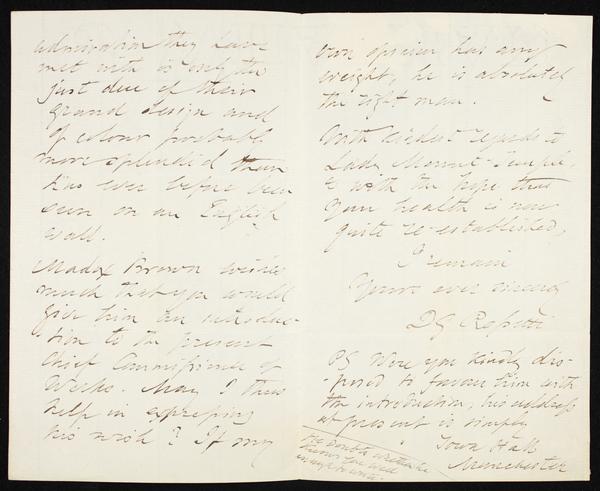 admiration they have
met with is only the
just due of their
grand design and
of colour probably
more splendid than
has ever before been
seen on an English
wall.
Madox Brown wishes
much that you would
give him an introduc-
tion to the present
Chief Commissioner of
Works. May I thus
help in expressing
his wish? If my
own opinion has any
weight, he is absolutely
the right man.
With kindest regards to
Lady Mount-Temple,
& with the hope that
your health is now
quite re-established,
I remain
Yours ever sincerely
DG Rossetti
PS Were you kindly dis-
posed to favour him with
the introduction, his address
at present is simply
Town Hall
Manchester
He doubts whether he
knows you well
enough to write.